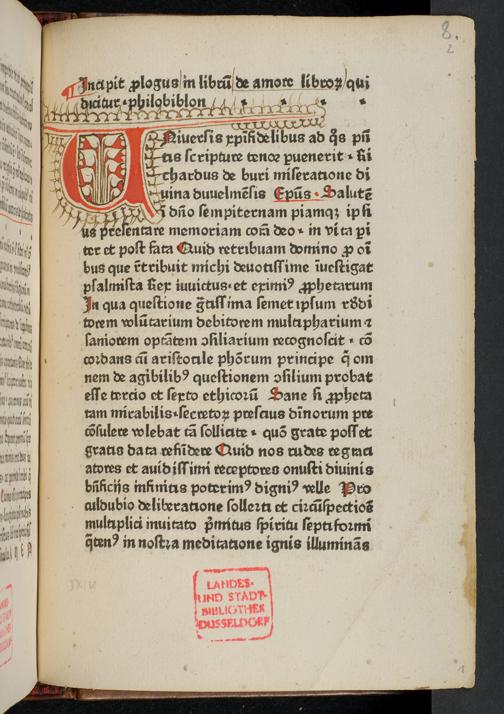 8.
2
Incipit ꝓlogus in librū de amore libroꝝ qui
dicitur · philobiblon
UNiuersis xp̄ifidelibus ad q̄s pn̄
tis scripture tenor ꝑuenerit · Ri
chardus de buri miseratione di
uina duuelmēsis Ep̄us · Salutē
ī dn̄o sempiternam piamqꝫ ip̄i
us presentare memoriam corā deo · in vita pi
ter et post fata Quid retribuam domino ꝓ oī
bus que r̄tribuit michi deuotissime īuestigat
psalmista Rex īuuictus · et eximiꝰ ꝓphetarum
In qua questione ḡtissima semet ipsum
torem volūtarium debitorem multipharium ⁊
saniorem optātem ↄsiliarium recognoscit · cō
cordans cū aristotile ph̄orum principe q̄ om
nem de agibilibꝰ questionem ↄsilium probat
esse tercio et sexto ethicorū Sane si ꝓpheta
tam mirabilis · secretoꝝ prescius diuīnorum pre
cōsulere volebat tā sollicite · quō grate posset
gratis data refūdere Quid nos rudes regraci
atores et auidissimi receptores onusti diuinis
bn̄ficijs infinitis poterimꝰ digniꝰ velle Pro
culdubio deliberatione sollerti et circūspectiōe
multiplici inuitato p̄mitus spiritu septiformi
q̄tenꝰ in nostra meditatione ignis illuminās
LANDES-
UND STADT-
BIBLIOTHEK
DÜSSELDORF
1